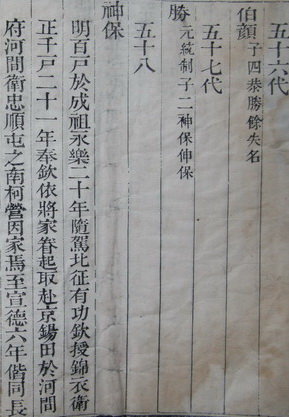 五十六代
伯顏 子四恭勝餘失名
五十七代
勝 元統制子二神保伸保
五十八
神保
明百戶於成祖永樂二十年隨駕北征有功欽授錦衣衛
正千戶二十一年奉欽依將家眷起取赴京錫田於河間
府河間衛忠順屯之南柯營因家焉至宣德六年偕同長